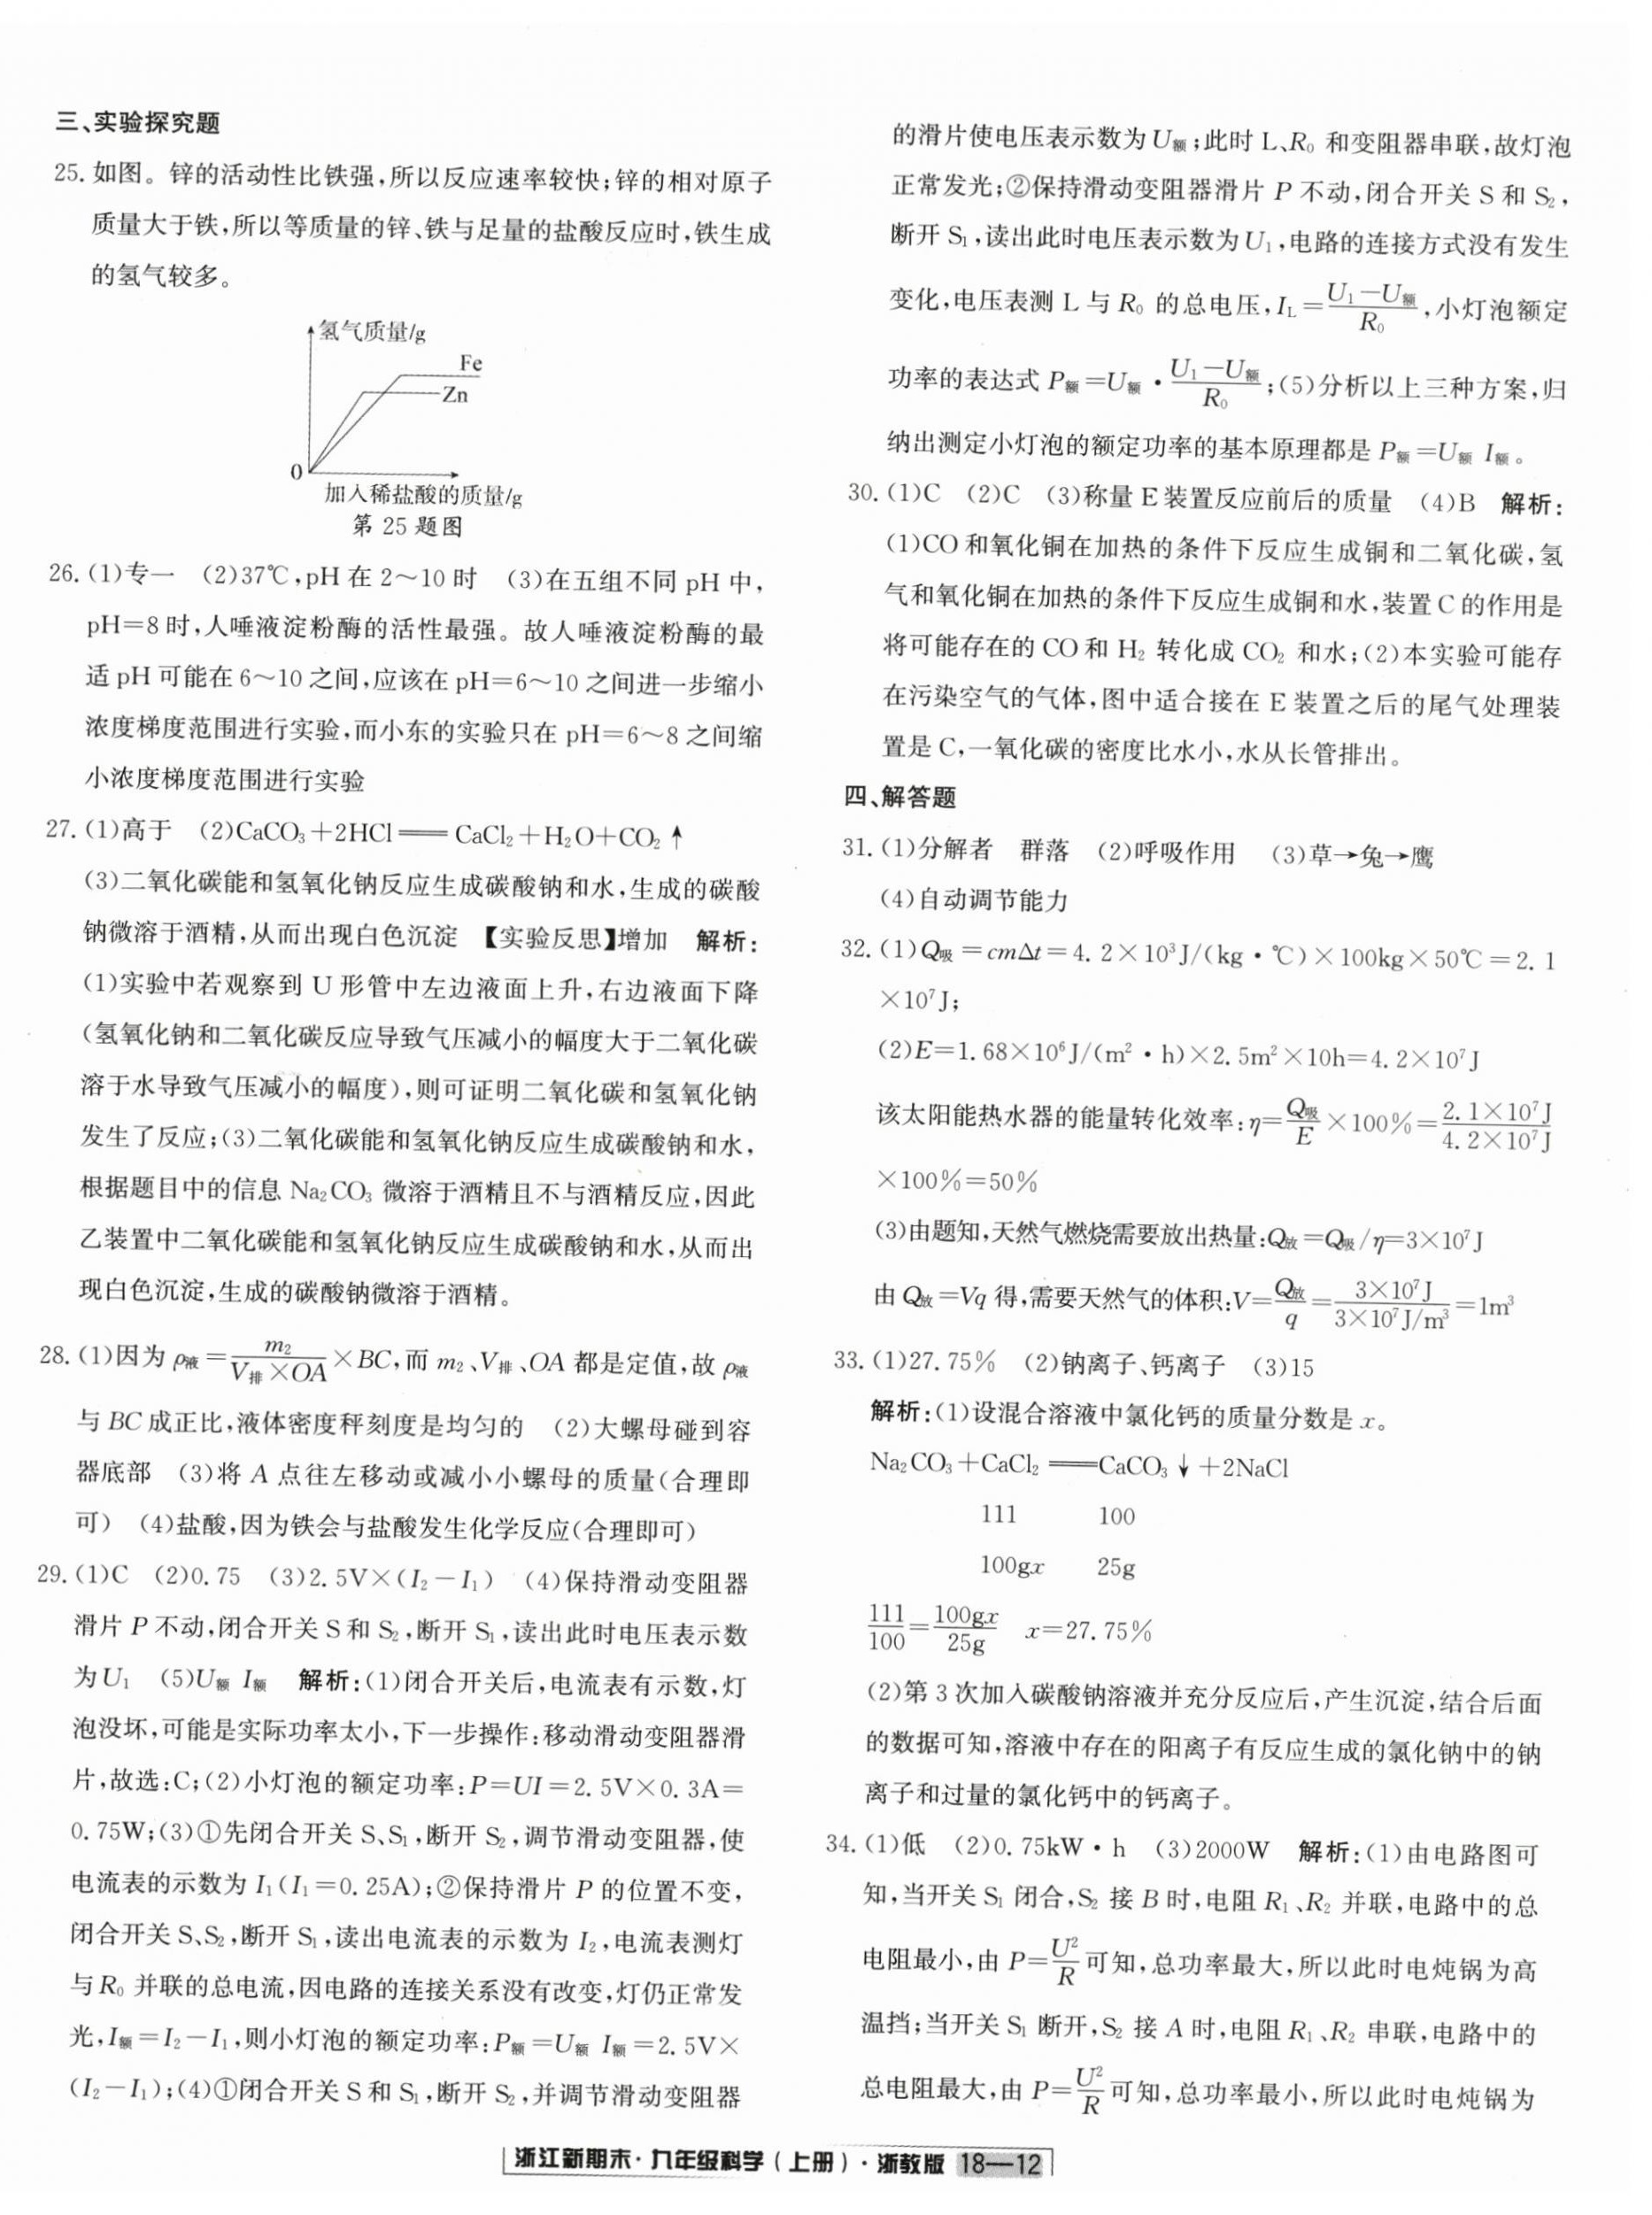 三、实验探究题
25. 如图。锌的活动性比铁强,所以反应速率较快;锌的相对原子
质量大于铁,所以等质量的锌、铁与足量的盐酸反应时,铁生成
的氢气较多。
氢气质量/g
Fe
Zn
0
加入稀盐酸的质量/g
第 25 题图
26. (1)专一 (2)37℃,pH 在 2～10 时 (3)在五组不同 pH 中,
pH=8 时,人唾液淀粉酶的活性最强。故人唾液淀粉酶的最
适 pH 可能在 6～10 之间,应该在 pH=6～10 之间进一步缩小
浓度梯度范围进行实验,而小东的实验只在 pH=6～8 之间缩
小浓度梯度范围进行实验
27. (1)高于 (2)CaCO₃+2HCl══CaCl₂+H₂O+CO₂↑
(3)二氧化碳能和氢氧化钠反应生成碳酸钠和水,生成的碳酸
钠微溶于酒精,从而出现白色沉淀 【实验反思】增加 解析:
(1)实验中若观察到 U 形管中左边液面上升,右边液面下降
(氢氧化钠和二氧化碳反应导致气压减小的幅度大于二氧化碳
溶于水导致气压减小的幅度),则可证明二氧化碳和氢氧化钠
发生了反应;(3)二氧化碳能和氢氧化钠反应生成碳酸钠和水,
根据题目中的信息 Na₂CO₃ 微溶于酒精且不与酒精反应,因此
乙装置中二氧化碳能和氢氧化钠反应生成碳酸钠和水,从而出
现白色沉淀,生成的碳酸钠微溶于酒精。
28. (1)因为 ρ液=m₂/(V排×OA)×BC,而 m₂、V排、OA 都是定值,故 ρ液
与 BC 成正比,液体密度秤刻度是均匀的 (2)大螺母碰到容
器底部 (3)将 A 点往左移动或减小小螺母的质量(合理即
可) (4)盐酸,因为铁会与盐酸发生化学反应(合理即可)
29. (1)C (2)0.75 (3)2.5V×(I₂-I₁) (4)保持滑动变阻器
滑片 P 不动,闭合开关 S 和 S₂,断开 S₁,读出此时电压表示数
为 U₁ (5)U额 I额 解析:(1)闭合开关后,电流表有示数,灯
泡没坏,可能是实际功率太小,下一步操作:移动滑动变阻器滑
片,故选:C;(2)小灯泡的额定功率:P=UI=2.5V×0.3A=
0.75W;(3)①先闭合开关 S、S₁,断开 S₂,调节滑动变阻器,使
电流表的示数为 I₁(I₁=0.25A);②保持滑片 P 的位置不变,
闭合开关 S、S₂,断开 S₁,读出电流表的示数为 I₂,电流表测灯
与 R₀ 并联的总电流,因电路的连接关系没有改变,灯仍正常发
光,I额=I₂-I₁,则小灯泡的额定功率:P额=U额 I额=2.5V×
(I₂-I₁);(4)①闭合开关 S 和 S₁,断开 S₂,并调节滑动变阻器
的滑片使电压表示数为 U额;此时 L、R₀ 和变阻器串联,故灯泡
正常发光;②保持滑动变阻器滑片 P 不动,闭合开关 S 和 S₂,
断开 S₁,读出此时电压表示数为 U₁,电路的连接方式没有发生
变化,电压表测 L 与 R₀ 的总电压,I_L=(U₁-U额)/R₀,小灯泡额定
功率的表达式 P额=U额·(U₁-U额)/R₀;(5)分析以上三种方案,归
纳出测定小灯泡的额定功率的基本原理都是 P额=U额 I额。
30. (1)C (2)C (3)称量 E 装置反应前后的质量 (4)B 解析:
(1)CO 和氧化铜在加热的条件下反应生成铜和二氧化碳,氢
气和氧化铜在加热的条件下反应生成铜和水,装置 C 的作用是
将可能存在的 CO 和 H₂ 转化成 CO₂ 和水;(2)本实验可能存
在污染空气的气体,图中适合接在 E 装置之后的尾气处理装
置是 C,一氧化碳的密度比水小,水从长管排出。
四、解答题
31. (1)分解者 群落 (2)呼吸作用 (3)草→兔→鹰
(4)自动调节能力
32. (1)Q吸=cmΔt=4.2×10³J/(kg·℃)×100kg×50℃=2.1
×10⁷J;
(2)E=1.68×10⁶J/(m²·h)×2.5m²×10h=4.2×10⁷J
该太阳能热水器的能量转化效率:η=Q吸/E×100%=2.1×10⁷J/4.2×10⁷J
×100%=50%
(3)由题知,天然气燃烧需要放出热量:Q放=Q吸/η=3×10⁷J
由 Q放=Vq 得,需要天然气的体积:V=Q放/q=3×10⁷J/3×10⁷J/m³=1m³
33. (1)27.75% (2)钠离子、钙离子 (3)15
解析:(1)设混合溶液中氯化钙的质量分数是 x。
Na₂CO₃+CaCl₂══CaCO₃↓+2NaCl
111 100
100gx 25g
111/100=100gx/25g x=27.75%
(2)第 3 次加入碳酸钠溶液并充分反应后,产生沉淀,结合后面
的数据可知,溶液中存在的阳离子有反应生成的氯化钠中的钠
离子和过量的氯化钙中的钙离子。
34. (1)低 (2)0.75kW·h (3)2000W 解析:(1)由电路图可
知,当开关 S₁ 闭合,S₂ 接 B 时,电阻 R₁、R₂ 并联,电路中的总
电阻最小,由 P=U²/R可知,总功率最大,所以此时电炖锅为高
温挡;当开关 S₁ 断开,S₂ 接 A 时,电阻 R₁、R₂ 串联,电路中的
总电阻最大,由 P=U²/R可知,总功率最小,所以此时电炖锅为
浙江新期末·九年级科学(上册)·浙教版 18—12